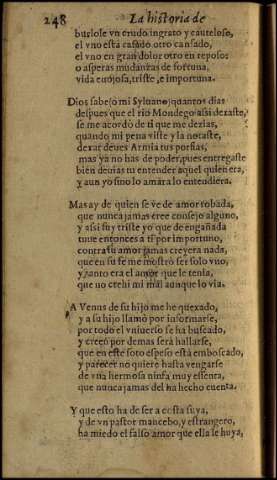 248 La historia de
burlose vn crudo ingrato y cauteloso,
el vno está casado otro cansado,
el vno en gran dolor otro en reposo:
o asperas mudanzas de fortuna.
vida enojosa, triste, e importuna.
Dios sabe jo mi Syluano, quantos dias
despues que el rio Mondego assi dexaste,
se me acordó de ti que me dezias,
quando mi pena viste y la notaste,
dexar deues Armia tus porfias,
mas ya no has de poder, pues entregaste
bien deuias tu entender aquel quien era,
y aun yo sino lo amára lo entendiera.
Mas ay de quien se vè de amor robada,
que nunca jamas cree consejo alguno,
y assi fuy triste yo que de engañada
tuue entonces a ti por importuno,
contra su amor jamas creyera nada,
que en su fe me mostró ser solo vno,
y tanto era el amor que le tenia,
que no crehi mi mal aunque lo via.
A Venus de su hijo me he quexado,
y a su hijo llamò por informarse,
por todo el vniuerso se ha buscado,
y creeò por demas será hallarse,
que en este soto espeso està emboscado,
y parecer no quiere hasta vengarse
de vna hermosa ninfa muy essenta,
que nunca jamas del ha hecho cuenta.
Y que esto ha de ser a costa suya,
y de vn pastor mancebo, y estrangero,
ha miedo el falso amor que ella le huya,